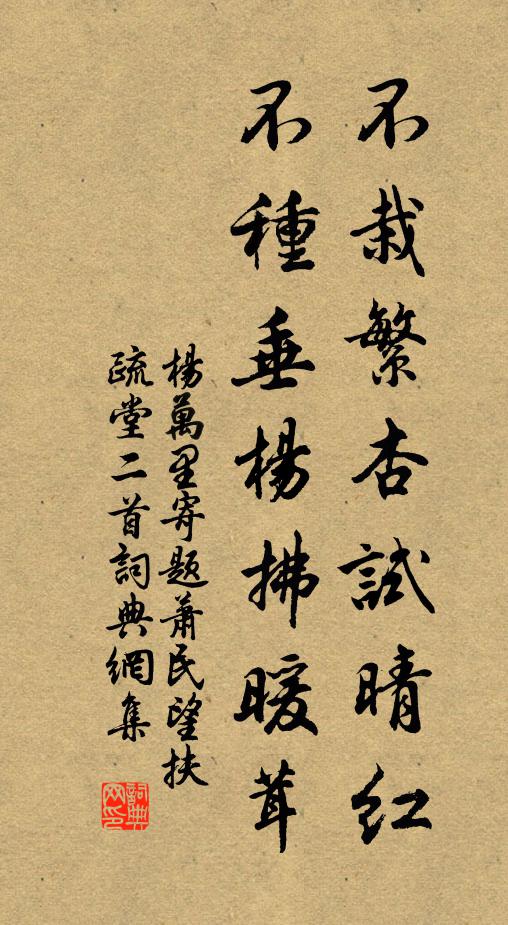 不栽繁杏試晴紅
不種垂楊拂暖茸
楊萬里寄题蕭民望扶
疏堂二首詞典網集
詞典
网印